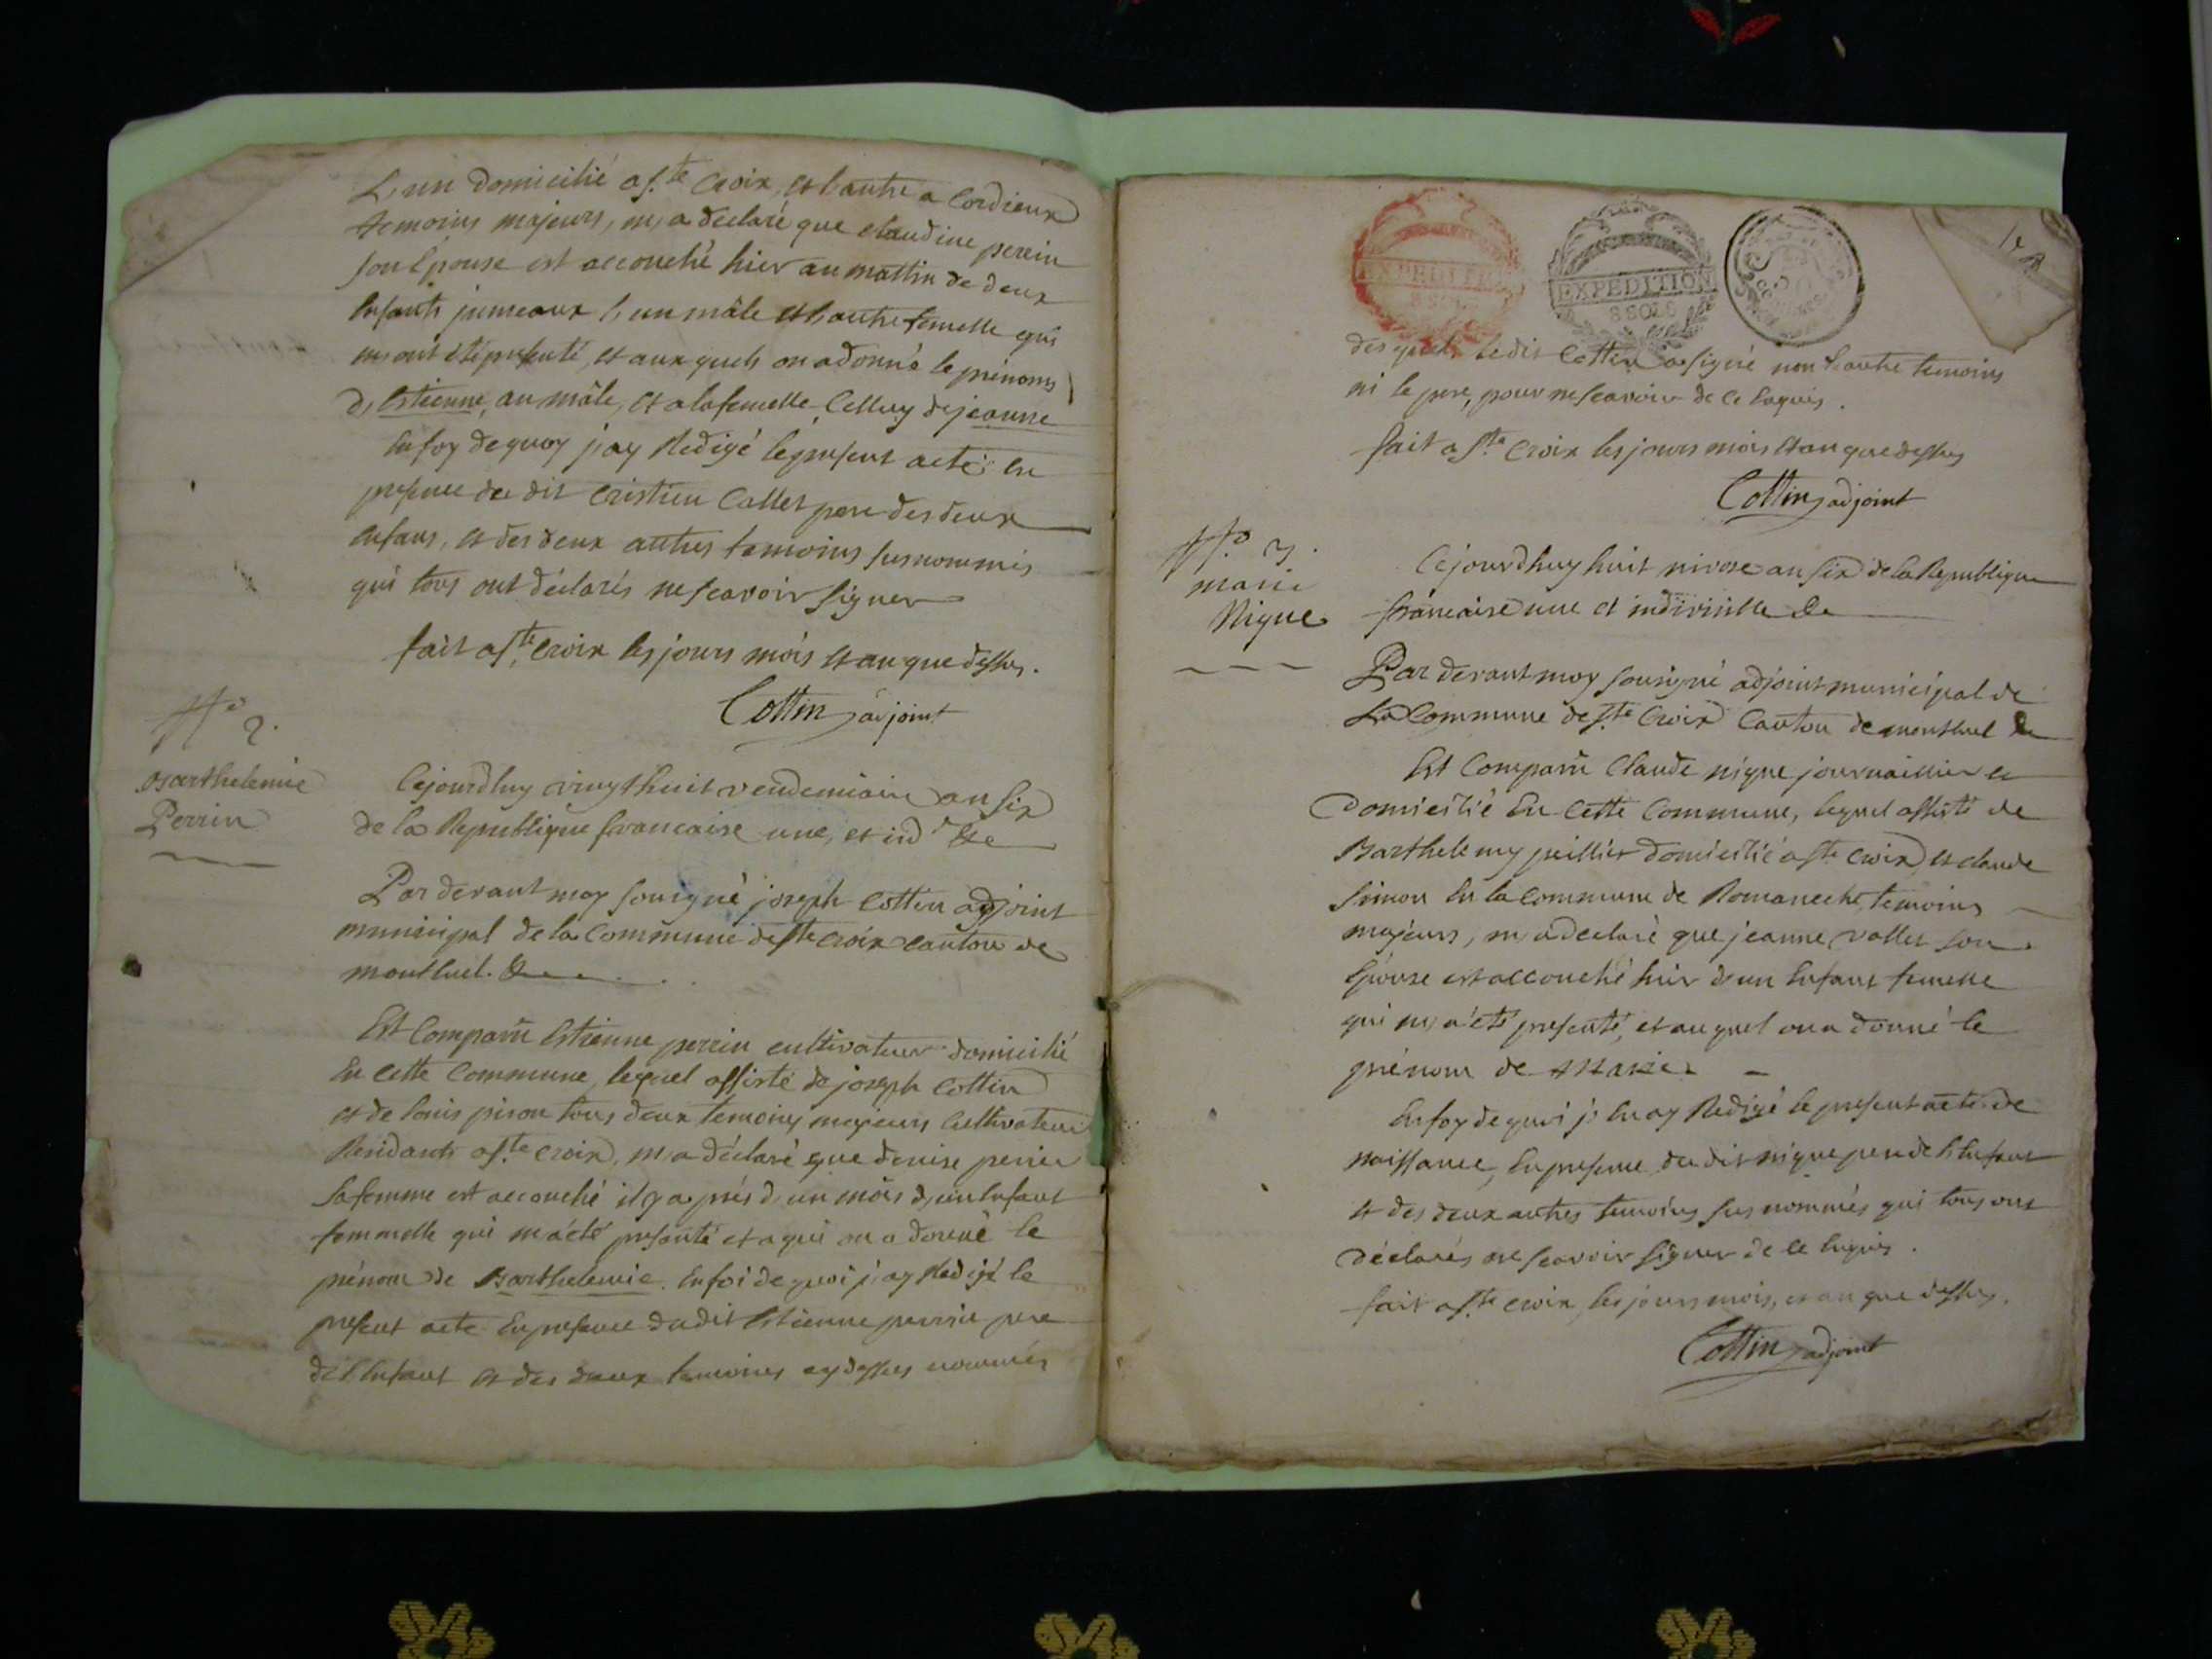 L'un domicilié a s.te Croix, et l'autre a Cordieux
temoins majeurs, m'a declaré que claudine perrin
son Epouse est accouché hier au mattin de deux
Enfants jumeaux l'un mâle et l'autre femelle qui
m'ont été presenté, et aux quels on a donné le prénoms
d'Estienne, au mâle, et a la femelle Celluy de jeanne
En foy de quoy j'ay Redigé le present acte En
presence du dit Cristien Collet pere des deux
enfans, et des deux autres temoins susnommés
qui tous ont déclarés ne scavoir signer
fait a s.te Croix les jours mois et an que dessus.
Cottin adjoint
N.o 2.
Barthelemie
Perrin
Cejourd'huy vingt huit vendemiaire an six
de la Republique francaise une, et ind.le &e
Par devant moy sousigné joseph Cottin adjoint
municipal de la Commune de ste Croix canton de
montluel. &
Est Comparu Estienne perrin cultivateur domicilié
En cette Commune, lequel assisté de joseph Cottin
et de Louis pison tous deux temoins majeurs Cultivateurs
Residants a s.te Croix, m'a déclaré que denise perrier
sa femme est accouché il y a près d'un mois d'un Enfant
femmelle qui m'a été presenté et a qui on a donné le
prénom de Barthelemie. En foi de quoi j'ay Redigé le
present acte En presence du dit Estienne perrin pere
de l'Enfant et des deux temoins cy dessus nommés
EXPEDITION
8 SOLS
EXPEDITION
8 SOLS
des quels ledit Cottin a signé non l'autre temoins
ni le pere, pour ne scavoir de ce Enquis.
fait a s.te Croix les jours mois et an que dessus
Cottin adjoint
N.o 3.
marie
Nique
Cejourd'huy huit nivose an six de la Republique
francaise une et indivisible &e
Par devant moy sousigné adjoint municipal de
La Commune de s.te Croix Canton de montluel &e
Est Comparu Claude nique journaillier
Domicilié En cette Commune, lequel assisté de
Barthelemy peillier domicilié a ste Croix, et claude
Simon En la commune de Romaneche, temoins
majeurs, m'a declaré que jeanne vallet son
Epouse est accouché hier d'un Enfant femelle
qui m'a été presenté, et au quel on a donné le
prénom de Marie.
En foy de quoi j'en ay Redigé le present acte de
naissance, En presence du dit nique pere de l'Enfant
et des deux autres temoins sus nommés qui tous ont
déclarés ne scavoir signer de ce Enquis.
fait a s.te Croix, les jours mois, et an que dessus.
Cottin adjoint